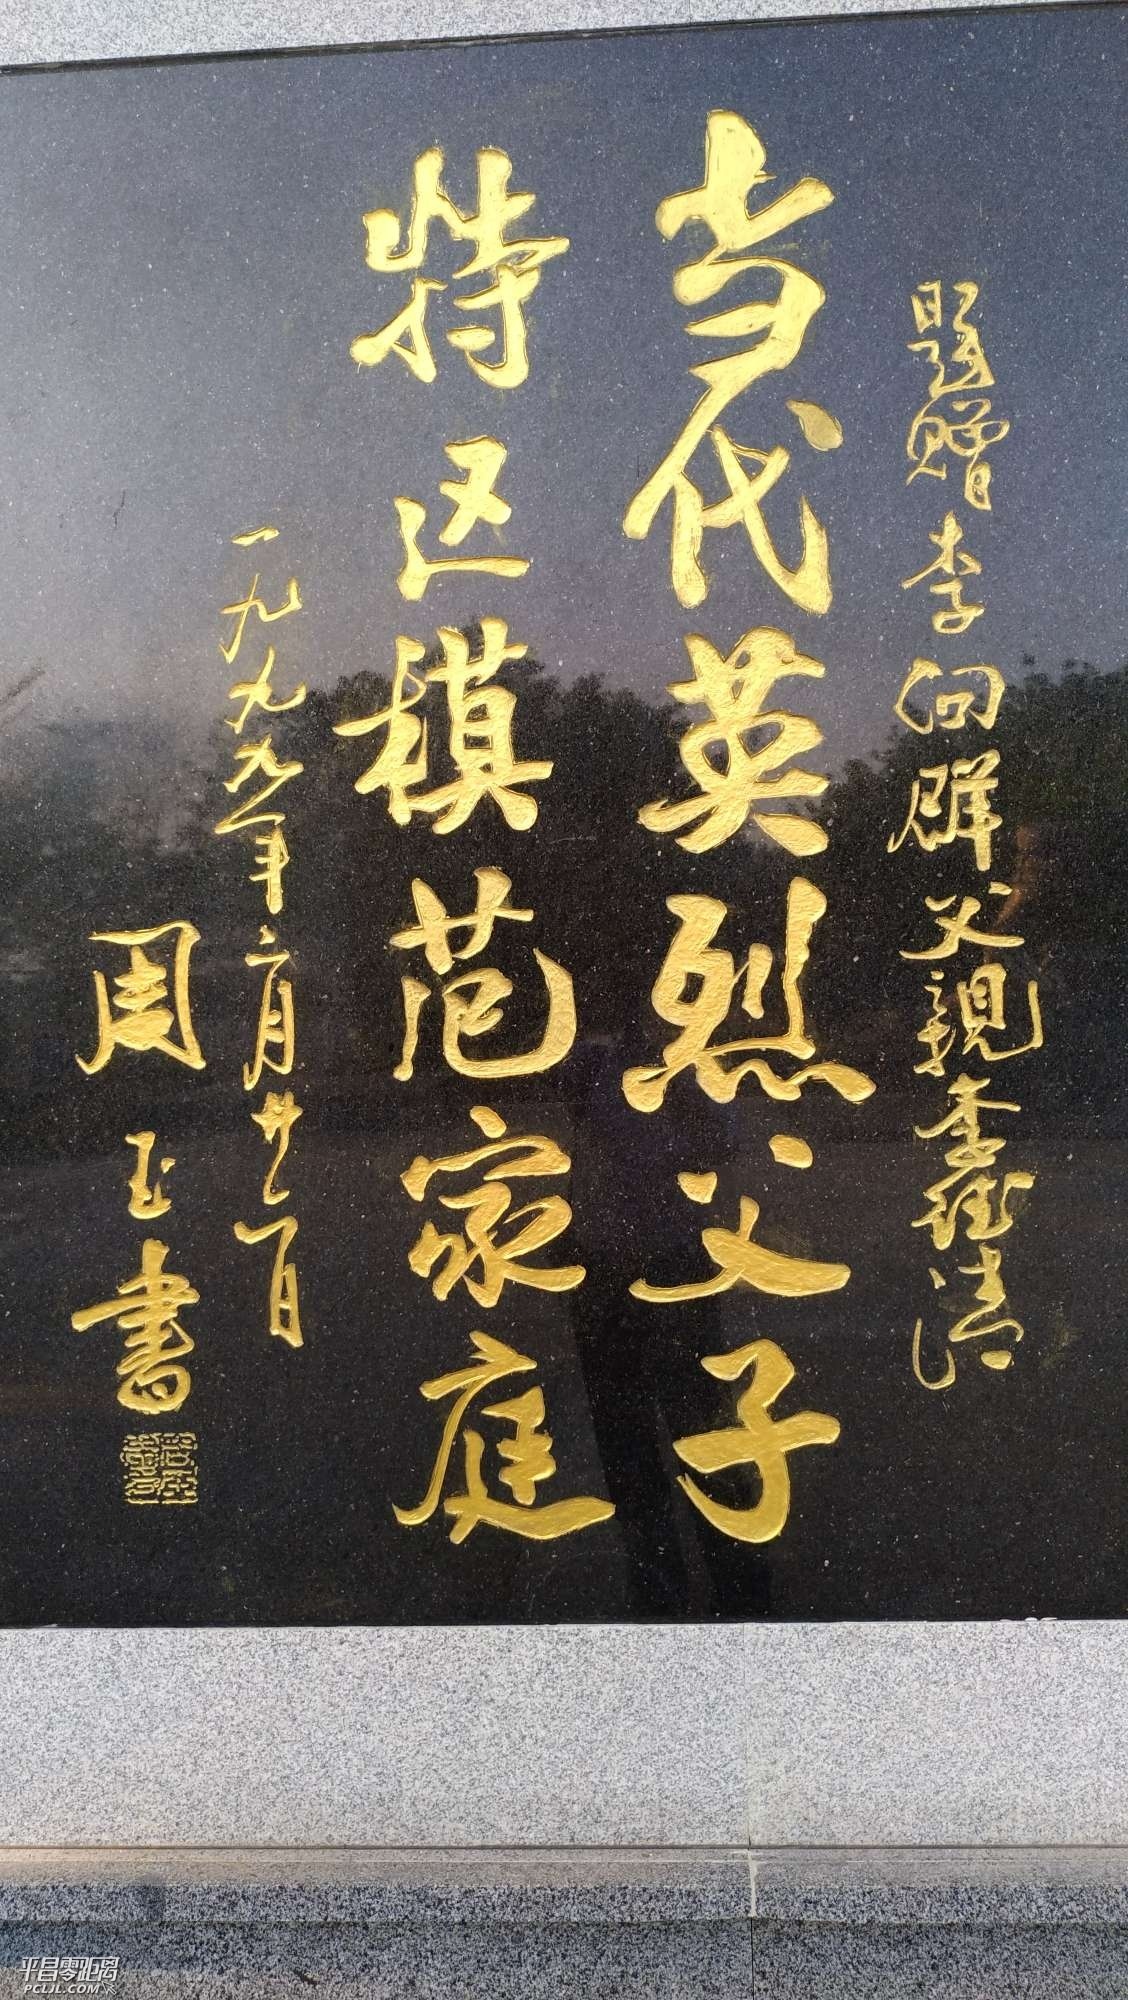 题赠李向群父親李德清
当代英烈父子
特区模范家庭
一九九九年六月廿一日
周玉書
平昌零距离
PCLJL.COM